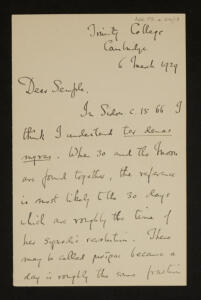 Trinity College
Cambridge
6 March 1929
Dear Semple,
In Sidon. c. 15 66 I
think I understand ter denas
When 30 and the Moon
are found together, the reference
is most likely to the 30 days
which are roughly the time of
her synodic revolution. These
may be called because a
day is roughly the same fraction